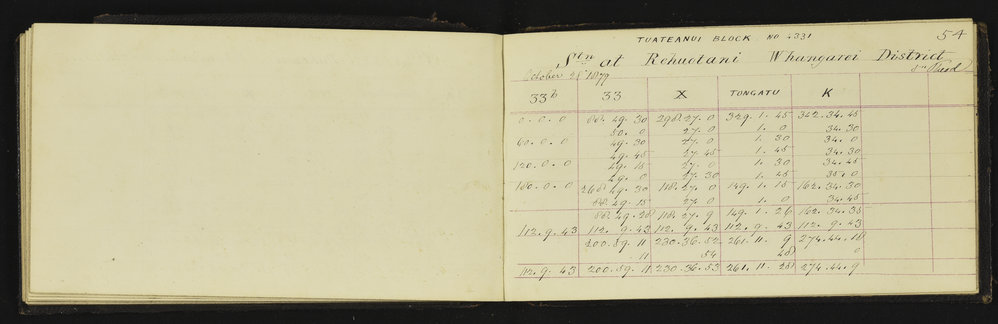 TUATEANUI BLOCK NO 4331 54
Stn at Rehuotani Whangarei District
October 28th 1879
33b 33 X TONGATU K
0. 0. 0 88. 49. 30 298. 27. 0 329. 1. 45 342. 34. 45
50. 0 27. 0 1. 0 34. 30
60. 0. 0 49. 30 27. 0 1. 30 34. 0
49. 45 27. 45 1. 45 34. 30
120. 0. 0 49. 15 27. 0 1. 30 34. 45
49. 0 27. 30 1. 45 35. 0
180. 0. 0 268. 49. 30 118. 27. 0 149. 1. 15 162. 34. 30
88. 49. 15 27. 0 1. 0 34. 45
88. 49. 28 118. 27. 9 149. 1. 26 162. 34. 35
112. 9. 43 112. 9. 43 112. 9. 43 112. 9. 43 112. 9. 43
200. 59. 11 230. 36. 52 261. 11. 9 274. 44. 18
11 54 28 0
112. 9. 43 200. 59. 11 230. 36. 53 261. 11. 28 274. 44. 9